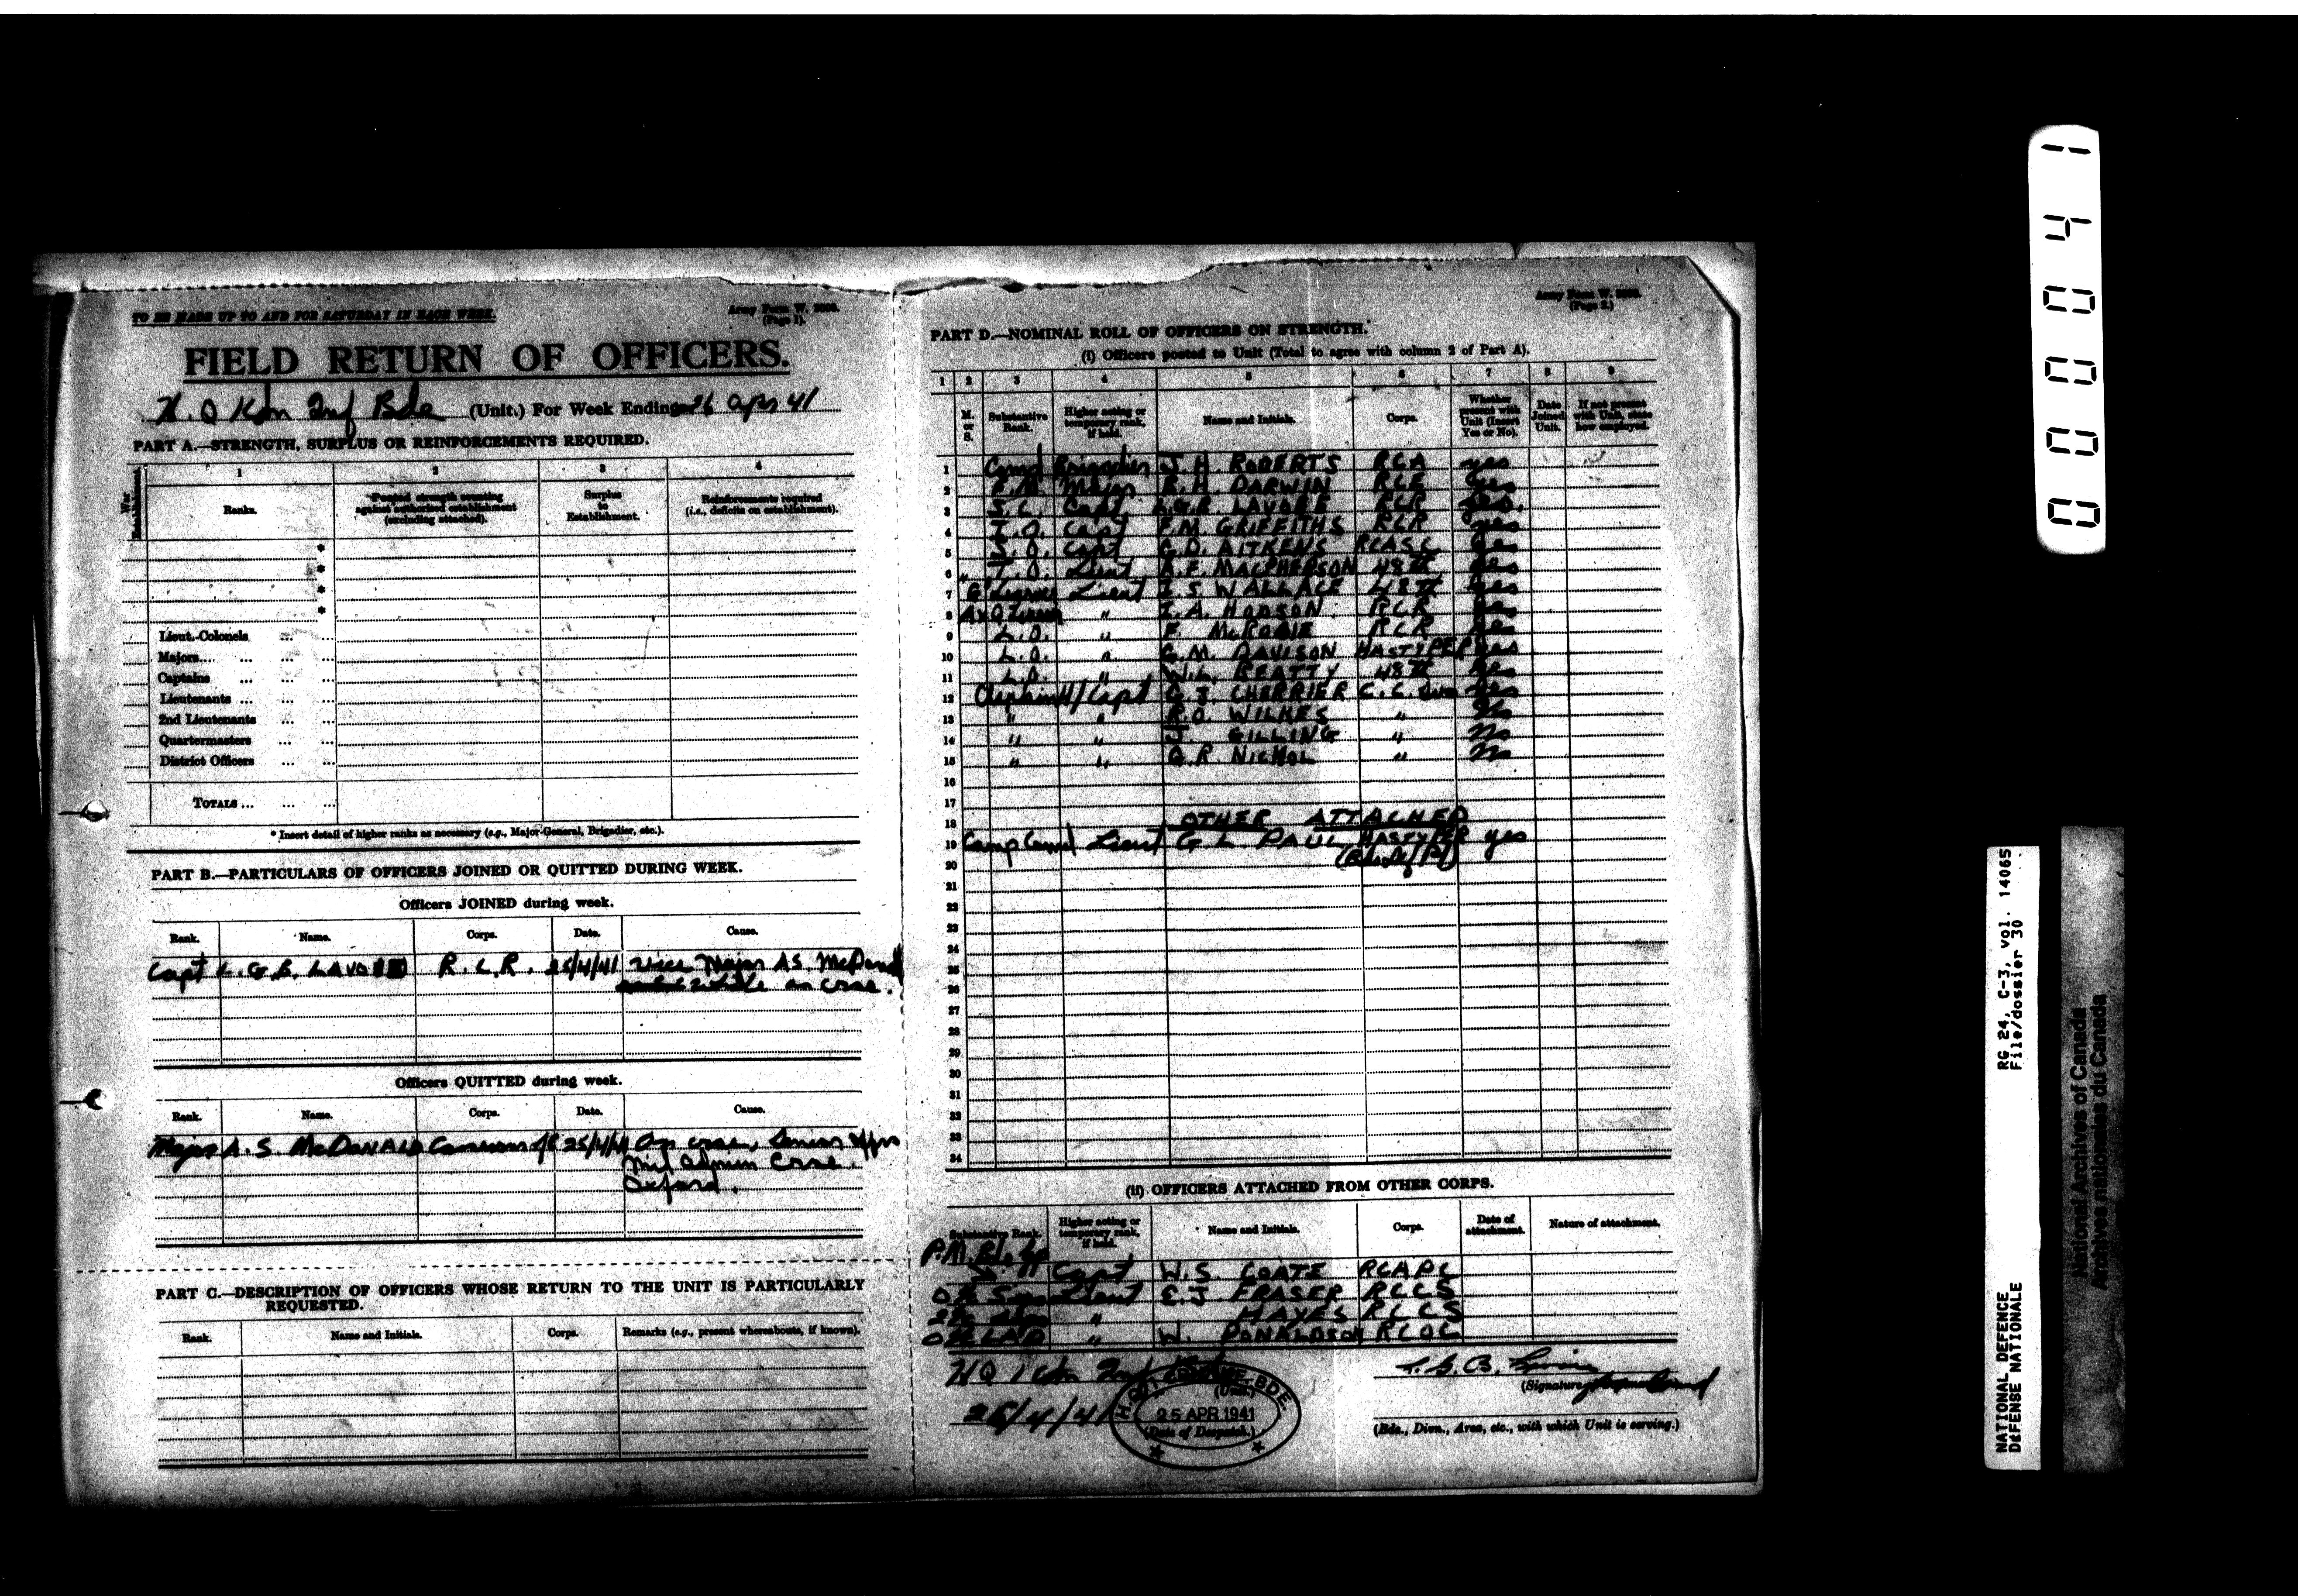 TO BE MADE UP TO AND FOR SATURDAY IN EACH WEEK.
Army Form W.
(Page 1).
FIELD RETURN OF OFFICERS.
H.Q Inf Bde (Unit.) For Week Ending 26 Apr 41
PART A.—STRENGTH, SURPLUS OR REINFORCEMENTS REQUIRED.
1 2 3 4
War Establishment.
Ranks.
Posted strength counting against authorized establishment (excluding attached).
Surplus to Establishment.
Reinforcements required (i.e., deficits on establishment).
*
*
*
*
Lieut.-Colonels ... ...
Majors... ... ... ...
Captains ... ... ...
Lieutenants ... ... ...
2nd Lieutenants ... ...
Quartermasters ... ...
District Officers ... ...
TOTALS ... ... ...
* Insert detail of higher ranks as necessary (e.g., Major-General, Brigadier, etc.).
PART B.—PARTICULARS OF OFFICERS JOINED OR QUITTED DURING WEEK.
Officers JOINED during week.
Rank. Name. Corps. Date. Cause.
Capt L.G.B. R.C.R. 25/4/41 Vice Major A.S.
on crse.
Officers QUITTED during week.
Rank. Name. Corps. Date. Cause.
Major A.S. McDONALD 25/4/41 crse,
Mil Admin Crse.
Oxford.
PART C.—DESCRIPTION OF OFFICERS WHOSE RETURN TO THE UNIT IS PARTICULARLY
REQUESTED.
Rank. Name and Initials. Corps. Remarks (e.g., present whereabouts, if known).
Army Form W.
(Page 2.)
PART D.—NOMINAL ROLL OF OFFICERS ON STRENGTH.
(i) Officers posted to Unit (Total to agree with column 2 of Part A).
1 2 3 4 5 6 7 8 9
M. or S.
Substantive Rank.
Higher acting or temporary rank, if held.
Name and Initials.
Corps.
Whether present with Unit (Insert Yes or No).
Date Joined Unit.
If not present with Unit, state how employed.
1 Comd Brigadier J.H. ROBERTS RCA yes
2 B.M. Major R.H. DARWIN RCE yes
3 S.C. Capt RCR yes.
4 I.O. Capt F.M. GRIFFITHS RCR yes
5 S.O. Capt G.D. AITKENS RCASC yes
6 " T.O. Lieut A.F. MACPHERSON 48th yes
7 Lieut I.S. WALLACE 48th yes
8 " I.A. HODSON RCR yes
9 L.O. " F. McROBIE RCR yes
10 L.O. " G.M. DAVISON HASTY PER yes
11 L.O. " W.L. BEATTY 48th yes
12 Chaplain H/Capt C.J. CHERRIER C.C. yes
13 " " R.O. WILKES "
14 " " J. GILLING " No
15 " " G.R. NICHOL " No
16
17
18 OTHER ATTACHED
19 Camp Comd Lieut G L PAUL HASTY PER yes
20
21
22
23
24
25
26
27
28
29
30
31
32
33
34
(ii) OFFICERS ATTACHED FROM OTHER CORPS.
Substantive Rank.
Higher acting or temporary rank, if held.
Name and Initials.
Corps.
Date of attachment.
Nature of attachment.
Capt W.S. COATE RCAPC
Lieut E.J FRASER RCCS
" HAYES RCCS
" W. DONALDSON RCOC
HQ 1 Cdn Inf Bde
(Unit.)
26/4/41
25 APR 1941
(Date of Despatch.)
(Signature
(Bde., Divn., Area, etc., with which Unit is serving.)
RG 24, C-3, vol. 14065
File/dossier 30
NATIONAL DEFENCE
DEFENSE NATIONALE
National Archives of Canada
Archives nationales du Canada